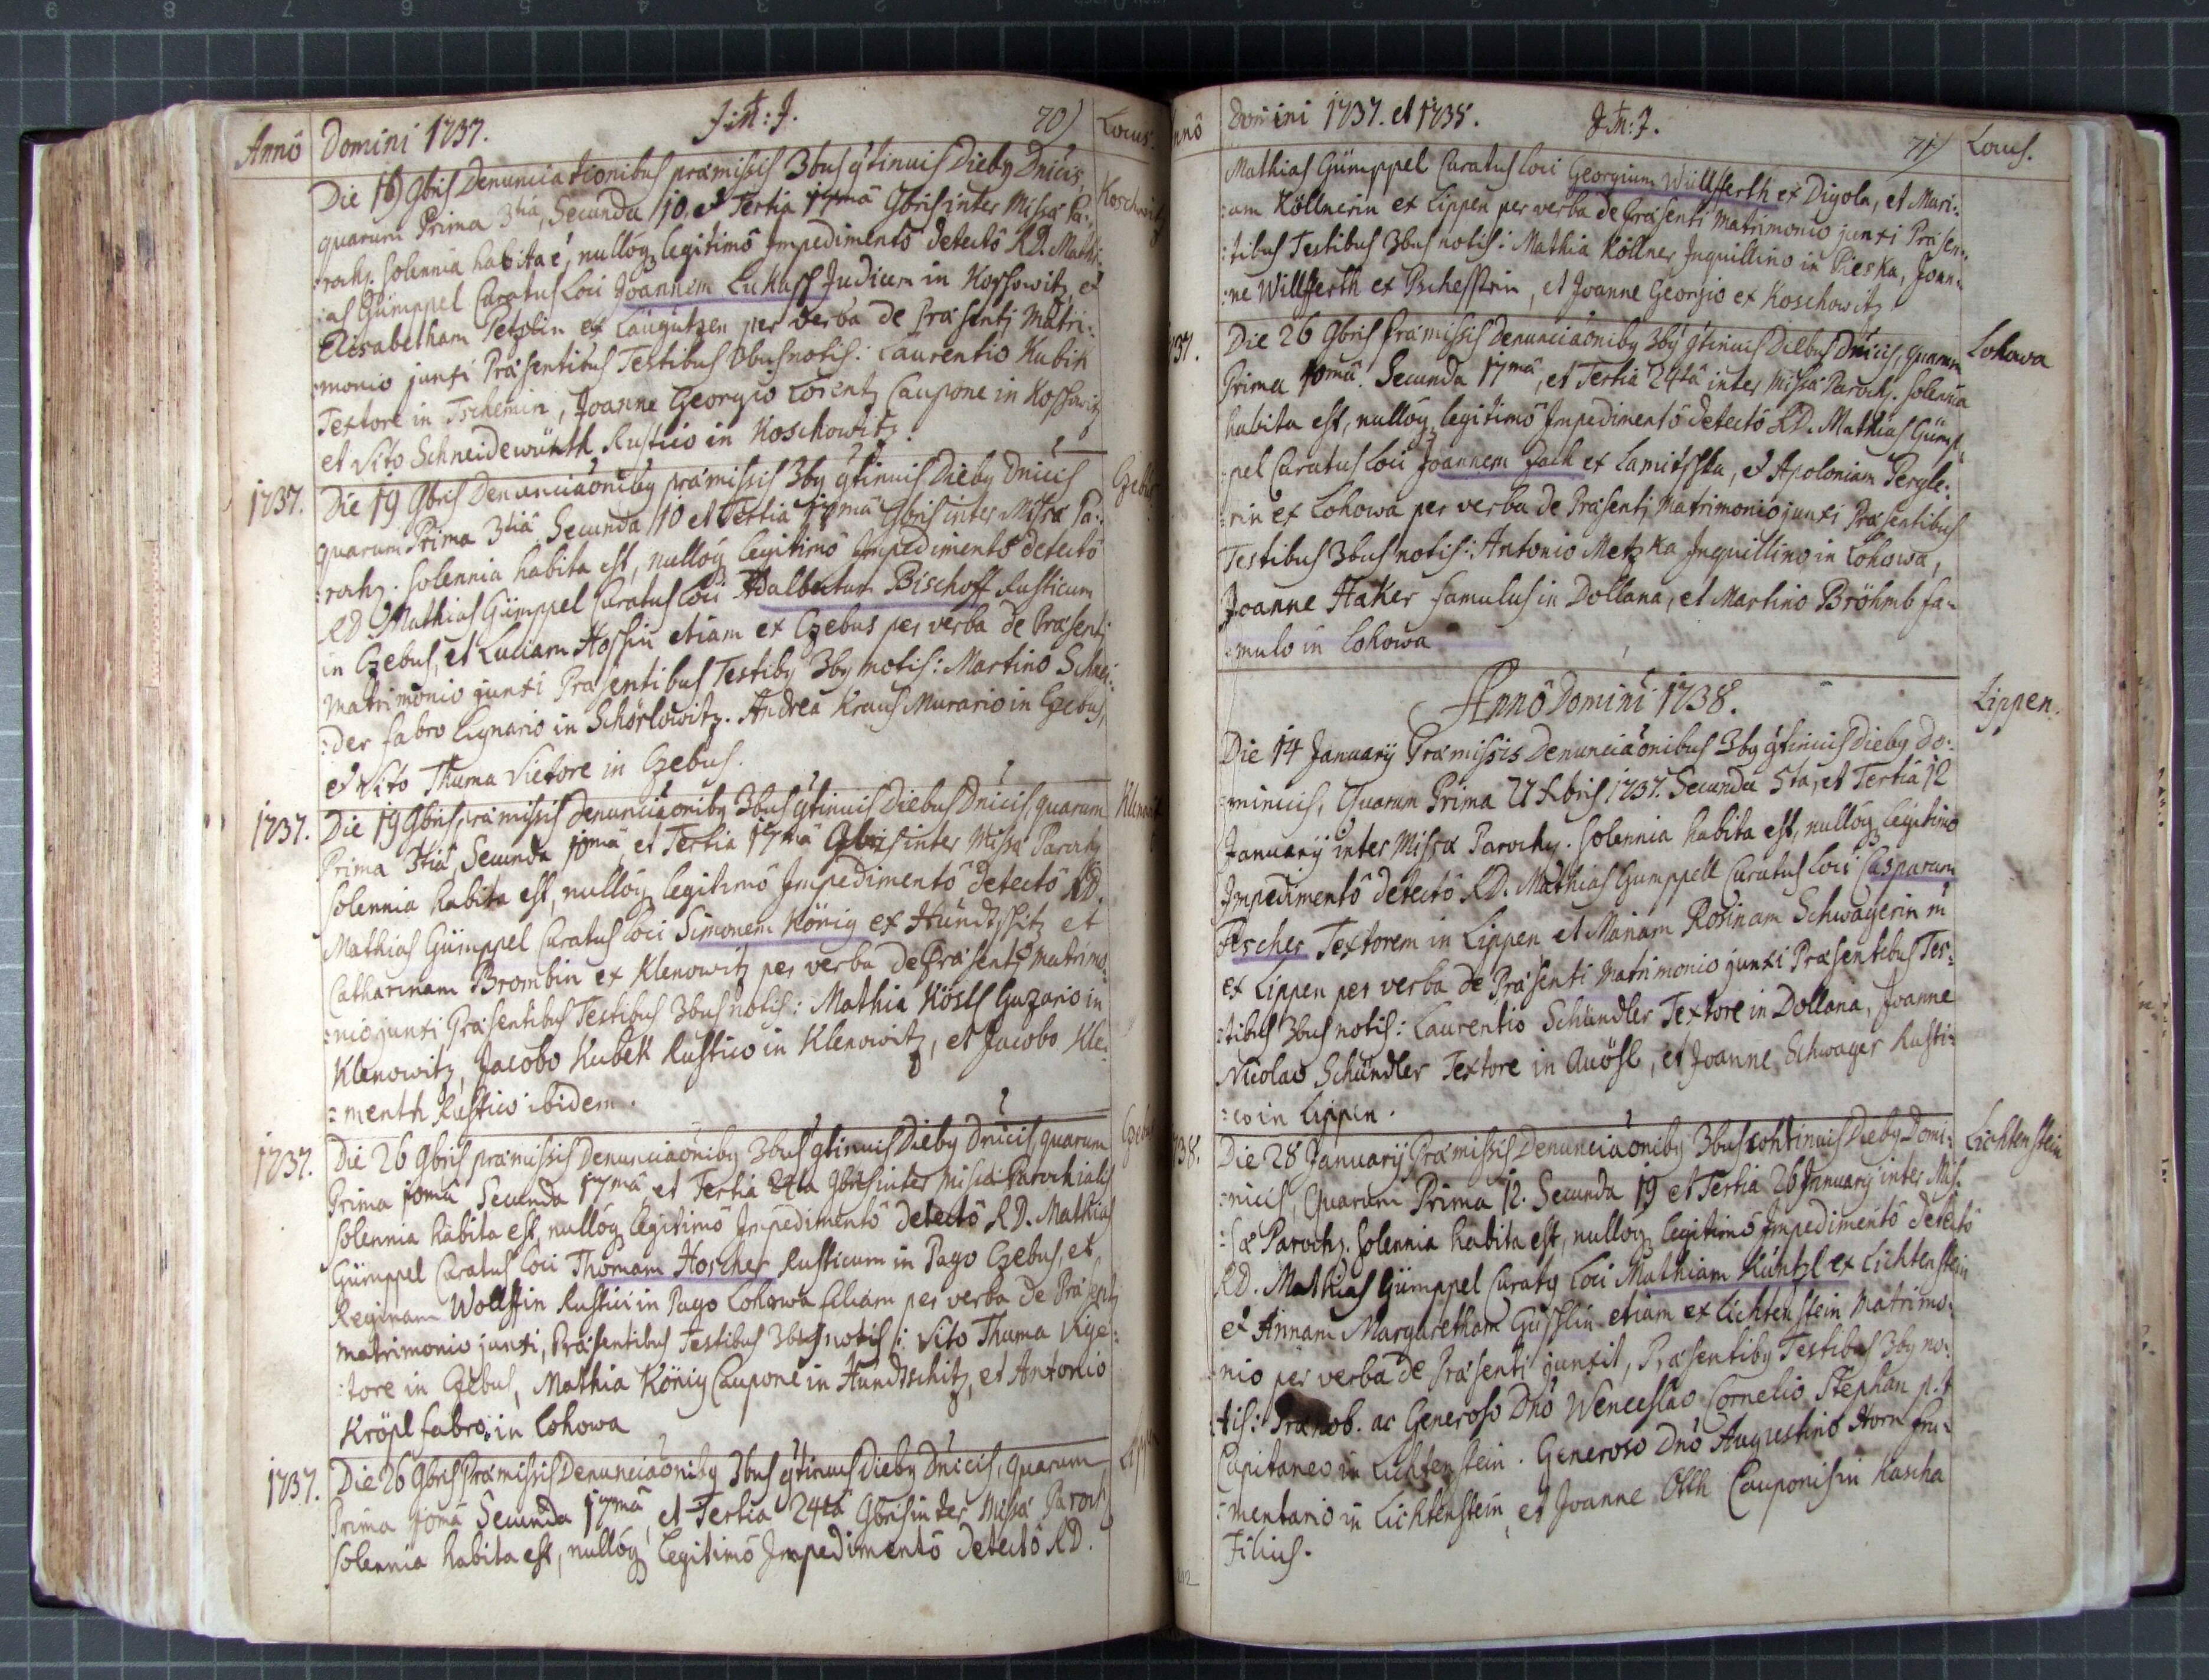 Annô Domini 1737. J: M: J. 70) Locus.
Die 19 9bris Denunciationibus praemissis 3bus gtinuis Dieby Dnicis, Koschowitz
quarum Prima 3tiâ, Secunda 10. et Tertia 17mâ 9bris inter Missae Pa:
:rochs. Solennia habitae, nullóq legitimô Impedimentô detectô RD. Mathi:
:as Gümppel Curatus loci Joannem Lukass Judicem in Kossowitz, et
Elisabetham Petzlin ex Laugutzen per verba de Praesentj Matri:
:monio junxi Praesentibus Testibus 3bus notis: Laurentio Kubik
Textore in Tschemin, Joanne Georgio Lorentz Caupone in Kossowitz
et Vito Schneidewürth Rustico in Koschowitz.
1737. Die 19 9bris Denunciaoniby praemissis 3by gtinuis Dieby Dnicis Czebus
quarum Prima 3tiâ Secunda 10 et Tertia 17mâ 9bris inter Missae Pa:
:roch. Solennia habita est, nullóq legitimô Impedimentô detectô
RD Mathias Gümppel Curatus loci Adalbertum Bischoff Rusticum
in Czebus, et Luciam Hossin etiam ex Czebus per verba de Praesentj
Matrimonio junxi Praesentibus Testiby 3by notis: Martino Schnei:
:der fabro lignario in Schörlowitz. Andrea Kraus Murario in Czebus,
et Vito Thuma Vietore in Czebus.
1737. Die 19 9bris praemissis Denunciaoniby 3bus gtinuis Diebus Dnicis, quarum Klenowitz
Prima 3tiâ, Secunda 10mâ et Tertia 17mâ 9bris inter Missae Paroch
Solennia habita est, nullóq legitimô Impedimentô detectô RD.
Mathias Gümppel Curatus loci Simonem König ex Hundtschitz et
Catharinam Brombin ex Klenowitz per verba de Praesentj Matrimo:
:nio junxi, Praesentibus Testibus 3bus notis: Mathia Kössl Gazario in
Klenowitz, Jacobo Kubek Rustico in Klenowitz, et Jacobo Kle:
:menth Rustico ibidem.
1737. Die 26 9bris praemissis Denunciaoniby 3bus gtinuis Dieby Dnicis, quarum Czebus
Prima 10mâ Secunda 17mâ et Tertia 24ta 9bris inter Missae Parochialis
Solennia habita est, nullóq legitimô Impedimentô detectô RD. Mathias
Gümppel Curatus loci Thomam Hoscher Rusticum in Pago Czebus, et
Reginam Wolffin Rustici in Pago Lohowa filiam per verba de Praesentj
matrimonio junxi, Praesentibus Testibus 3bus notis: Vito Thuma Vige:
:tore in Czebus, Mathia König Caupone in Hundtschitz, et Antonio
Kröpl fabro in Lohowa
1737. Die 26 9bris Praemissis Denunciaoniby 3bus gtinuis Dieby Dnicis, quarum Lippen
Prima 10mâ Secunda 17mâ, et Tertia 24tâ 9bris inter Missae Paroch
Solennia habita est, nullóq legitimô Impedimentô detectô RD.
Annô Domini 1737. et 1738. J: M: J. 71) Locus.
Mathias Gümppel Curatus loci Georgium Wüllfferth ex Digola, et Mari:
:am Köllnerin ex Lippen per verba de Praesenti Matrimonio junxi Praesen:
:tibus Testibus 3bus notis: Mathia Köllner Inquillino in Pieska, Joan:
:ne Willfferth ex Pschesstin, et Joanne Georgio ex Koschowitz
1737. Die 26 9bris Praemissis Denunciaoniby 3by gtinuis Diebus Dnicis, quarum Lohowa
Prima 10mâ. Secunda 17mâ, et Tertia 24tâ inter Missae Paroch. Solennia
habita est, nullóq legitimô Impedimentô detectô RD. Mathias Gümp:
:pel Curatus loci Joannem Pach ex Lamitsska, et Apoloniam Pergle:
:rin ex Lohowa per verba de Praesentj Matrimonio junxi Praesentibus
Testibus 3bus notis: Antonio Metzka Inquillino in Lohowa,
Joanne Haker famulus in Dollana, et Martino Bröhmb fa:
:mulo in Lohowa
Annô Domini 1738. Lippen.
Die 14 Januarij Praemissis Denunciaonibus 3by gtinuis Dieby Do:
:minicis, Quarum Prima 27 Xbris 1737. Secunda 5ta, et Tertia 12
Januarij inter Missae Parochy. Solennia habita est, nullóq legitimo
Impedimentô detectô RD. Mathias Gumppell Curatus loci Casparum
Fischer Textorem in Lippen et Mariam Rosinam Schwagerin
ex Lippen per verba de Praesenti Matrimonio junxi Praesentibus Tes:
:tibus 3bus notis: Laurentio Schündler Textore in Dollana, Joanne
Nicolao Schündler Textore in Auösl, et Joanne Schwager Rusti:
:co in Lippen.
1738. Die 28 Januarij Praemissis Denunciaoniby 3bus continuis Dieby Domi: Lichtenstein
:nicis, Quarum Prima 12. Secunda 19 et Tertia 26 Januarij inter Mis:
:sae Paroch. Solennia habita est, nullóq legitimô Impedimentô detectô
RD. Mathias Gümppel Curaty loci Mathiam Küntzl ex Lichtenstein
et Annam Margaretham Güsslin etiam ex Lichtenstein Matrimo:
:nio per verba de Praesenti junxit, Praesentiby Testibus 3by no:
:tis: Praenob. ac Generoso Dnô Wenceslao Cornelio Stephan p.t
Capitaneo in Lichtenstein. Generoso Dnô Augustinô Horn fru:
:mentario in Lichtenstein, et Joanne Otth Cauponis in Kascha
Filius.